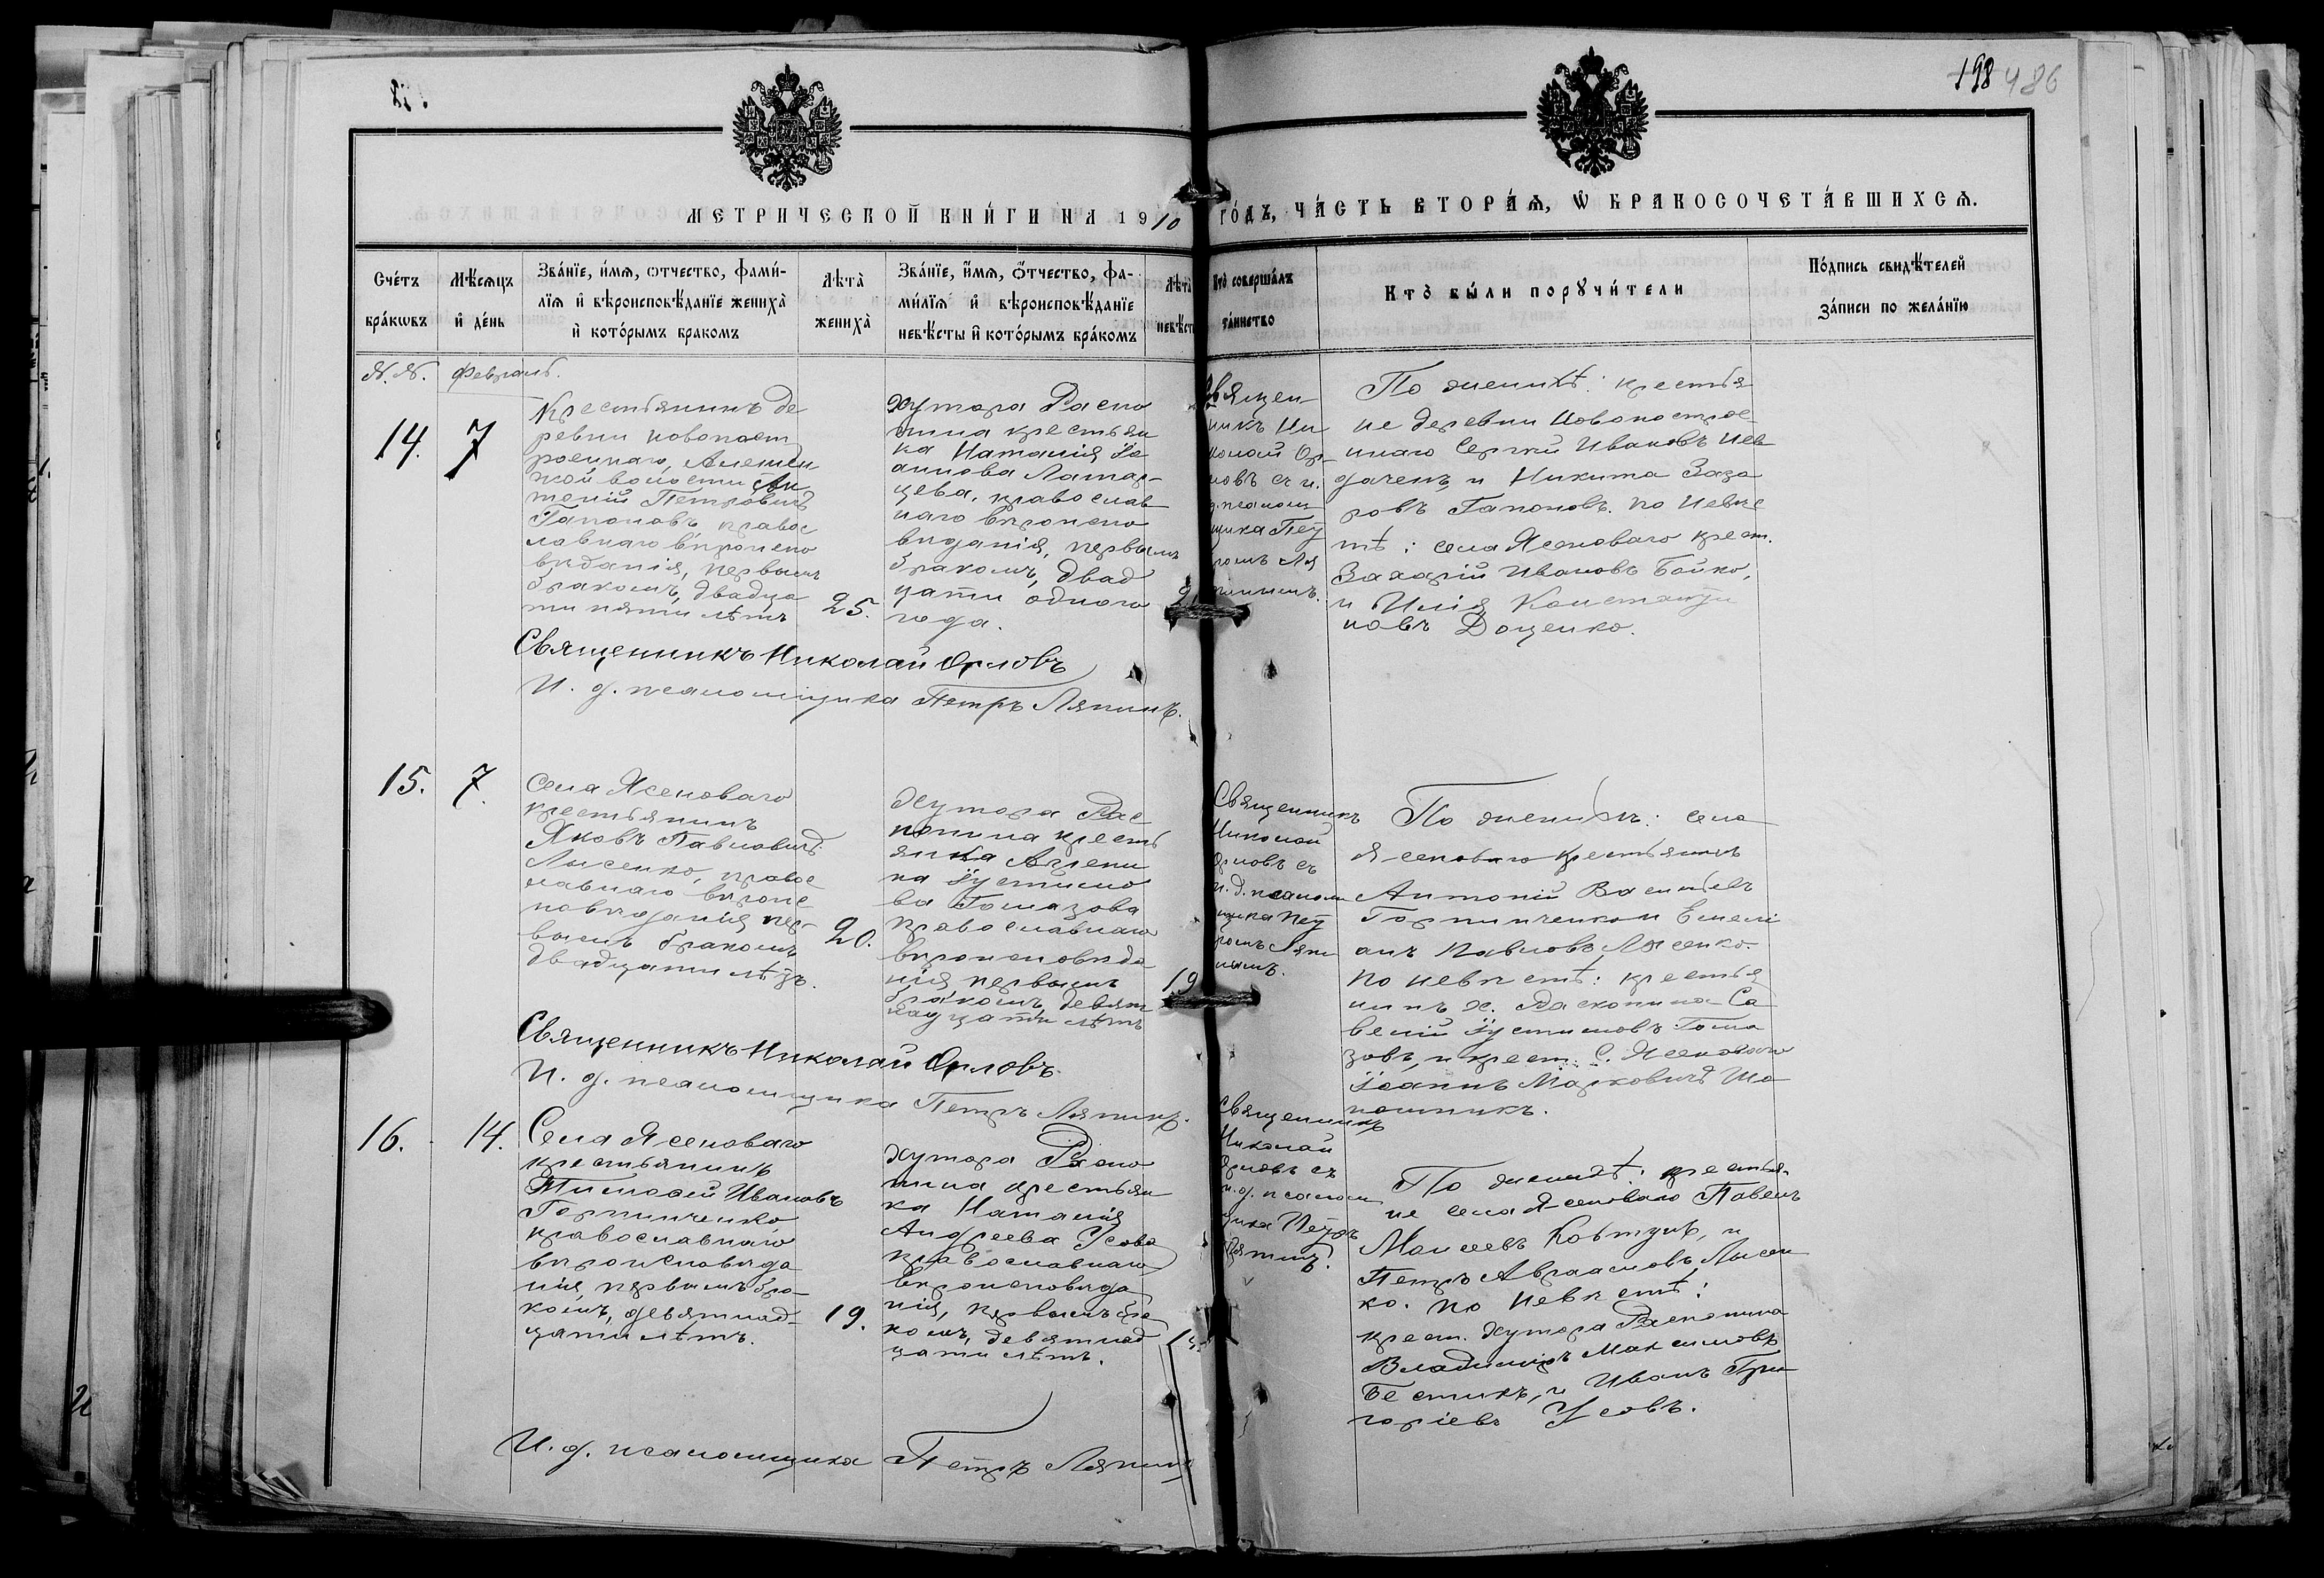 198 486
МЕТРИЧЕСКОЙ КНИ́ГИ НА 1910 ГО́ДЪ, ЧА́СТЬ ВТОРА́Ѧ, Ѽ БРАКОСОЧЕТА́ВШИХСѦ.
Счетъ бра́кѡвъ
Мѣсѧцъ и де́нь
Зва́нїе, и́мѧ, ѻтчество, фами́-
лїѧ и вѣроисповѣданїе жениха̀
и кото́рымъ бракомъ
Лѣта̀ жениха̀
Зва́нїе, и́мѧ, ѻтчество, фа-
ми́лїѧ и вѣроисповѣданїе
невѣсты и кото́рымъ бра́комъ
Лѣта̀ невѣст
Кто̀ соверша́лъ та́инство
Кто̀ бы́ли порꙋчи́тели
По́дпись свидѣтелей
за́писи по жела́нїю
N. N. Февраль.
14. 7
Крестьянинъ де
ревни новопост
роеннаго,
кой волости Ан
тоній Петровичъ
Гапоновъ, правос
лавнаго вѣроиспо
вѣданія, первымъ
бракомъ, двадца
ти пяти лѣтъ
25.
хутора Распо
пина крестьян
ка Наталія Іо
аннова Латар-
цева, православ
наго вѣроиспо
вѣданія, первымъ
бракомъ, двад
цати одного
года.
2
Священ-
никъ Ни
колай Ор-
ловъ съ и.
д. псаломщ
щика Пет
ромъ Ля
пинымъ.
По женихѣ: крестья
не деревни Новопострое
ннаго Сергѣй Ивановъ
и Никита Заза
ровъ Гапоновъ. по Невѣс
тѣ: села Ясеноваго крест.
Захарій Ивановъ Бойко,
и Илія Константи
новъ Доценко.
Священникъ Николай Орловъ
И. д. псаломщика Петръ Ляпинъ.
15. 7.
Села Ясеноваго
крестьянинъ
Яковъ Павловичъ
Лысенко, правос
лавнаго вѣроис
повѣданія пер-
вымъ бракомъ
двадцати лѣтъ.
20.
Хутора Рас
попина кресть
янка Агрепи
на Іустино
ва Гомазова
православнаго
вѣроисповѣда
нія, первымъ
бракомъ, девят
надцати лѣтъ
19
Священникъ
Николай
Орловъ съ
и. д. псалом
щика Пет
ромъ Ляпи
нымъ.
По женихѣ: села
Ясеноваго крестьянинъ
Антоній Васильевъ
Горпинченко и Емелі
анъ Павловъ Лысенко
по невѣстѣ: крестья
нинъ х. Распопина Са
велій Іустиновъ Гома
зовъ, и крест. С. Ясеноваго
Іоаннъ Марковичъ Ша
пошникъ.
Священникъ Николай Орловъ.
И. д. псаломщика Петръ Ляпинъ.
16. 14.
Села Ясеноваго
крестьянинъ
Тимофей Ивановъ
Горпинченко
православнаго
вѣроисповѣда
нія, первымъ бра-
комъ, девятнад-
цати лѣтъ.
19.
хутора Распо
пина крестьян
ка Наталія
Андреева Усова
православнаго
вѣроисповѣда
нія, первымъ бра
комъ, девятнад
цати лѣтъ.
Священникъ
Николай
Орловъ съ
и. д. псалом
щика Петръ
Ляпинъ.
По женихѣ: крестья-
не села Ясеноваго Павелъ
Моисеевъ Ковтунъ, и
Петръ Авраамовъ Лысен
ко. по Невѣстѣ:
крест. хутора Распопина
Владиміръ Максимовъ
Бестикъ, и Иванъ Гри
горіевъ Усовъ.
И. д. псаломщика Петръ Ляпинъ